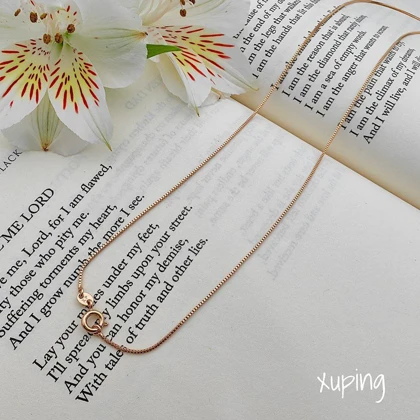 LACK
ME LORD
me, Lord, for I am flawed,
ty those who pity me.
Suffering torments my heart,
And I grow numb the more I see.
Lay your eyes under my feet,
I'll spread limbs upon your street.
And you can honor my demise,
With tales of truth and other lies.
the end of my
I am the legs that walk
I am the hands that fit
I am the reason that is
I am the diamond that only
I am a sea of empty words,
I am the anger that wants to
I am the pain that wan
I am the climax of my
And I will live, and
xuping